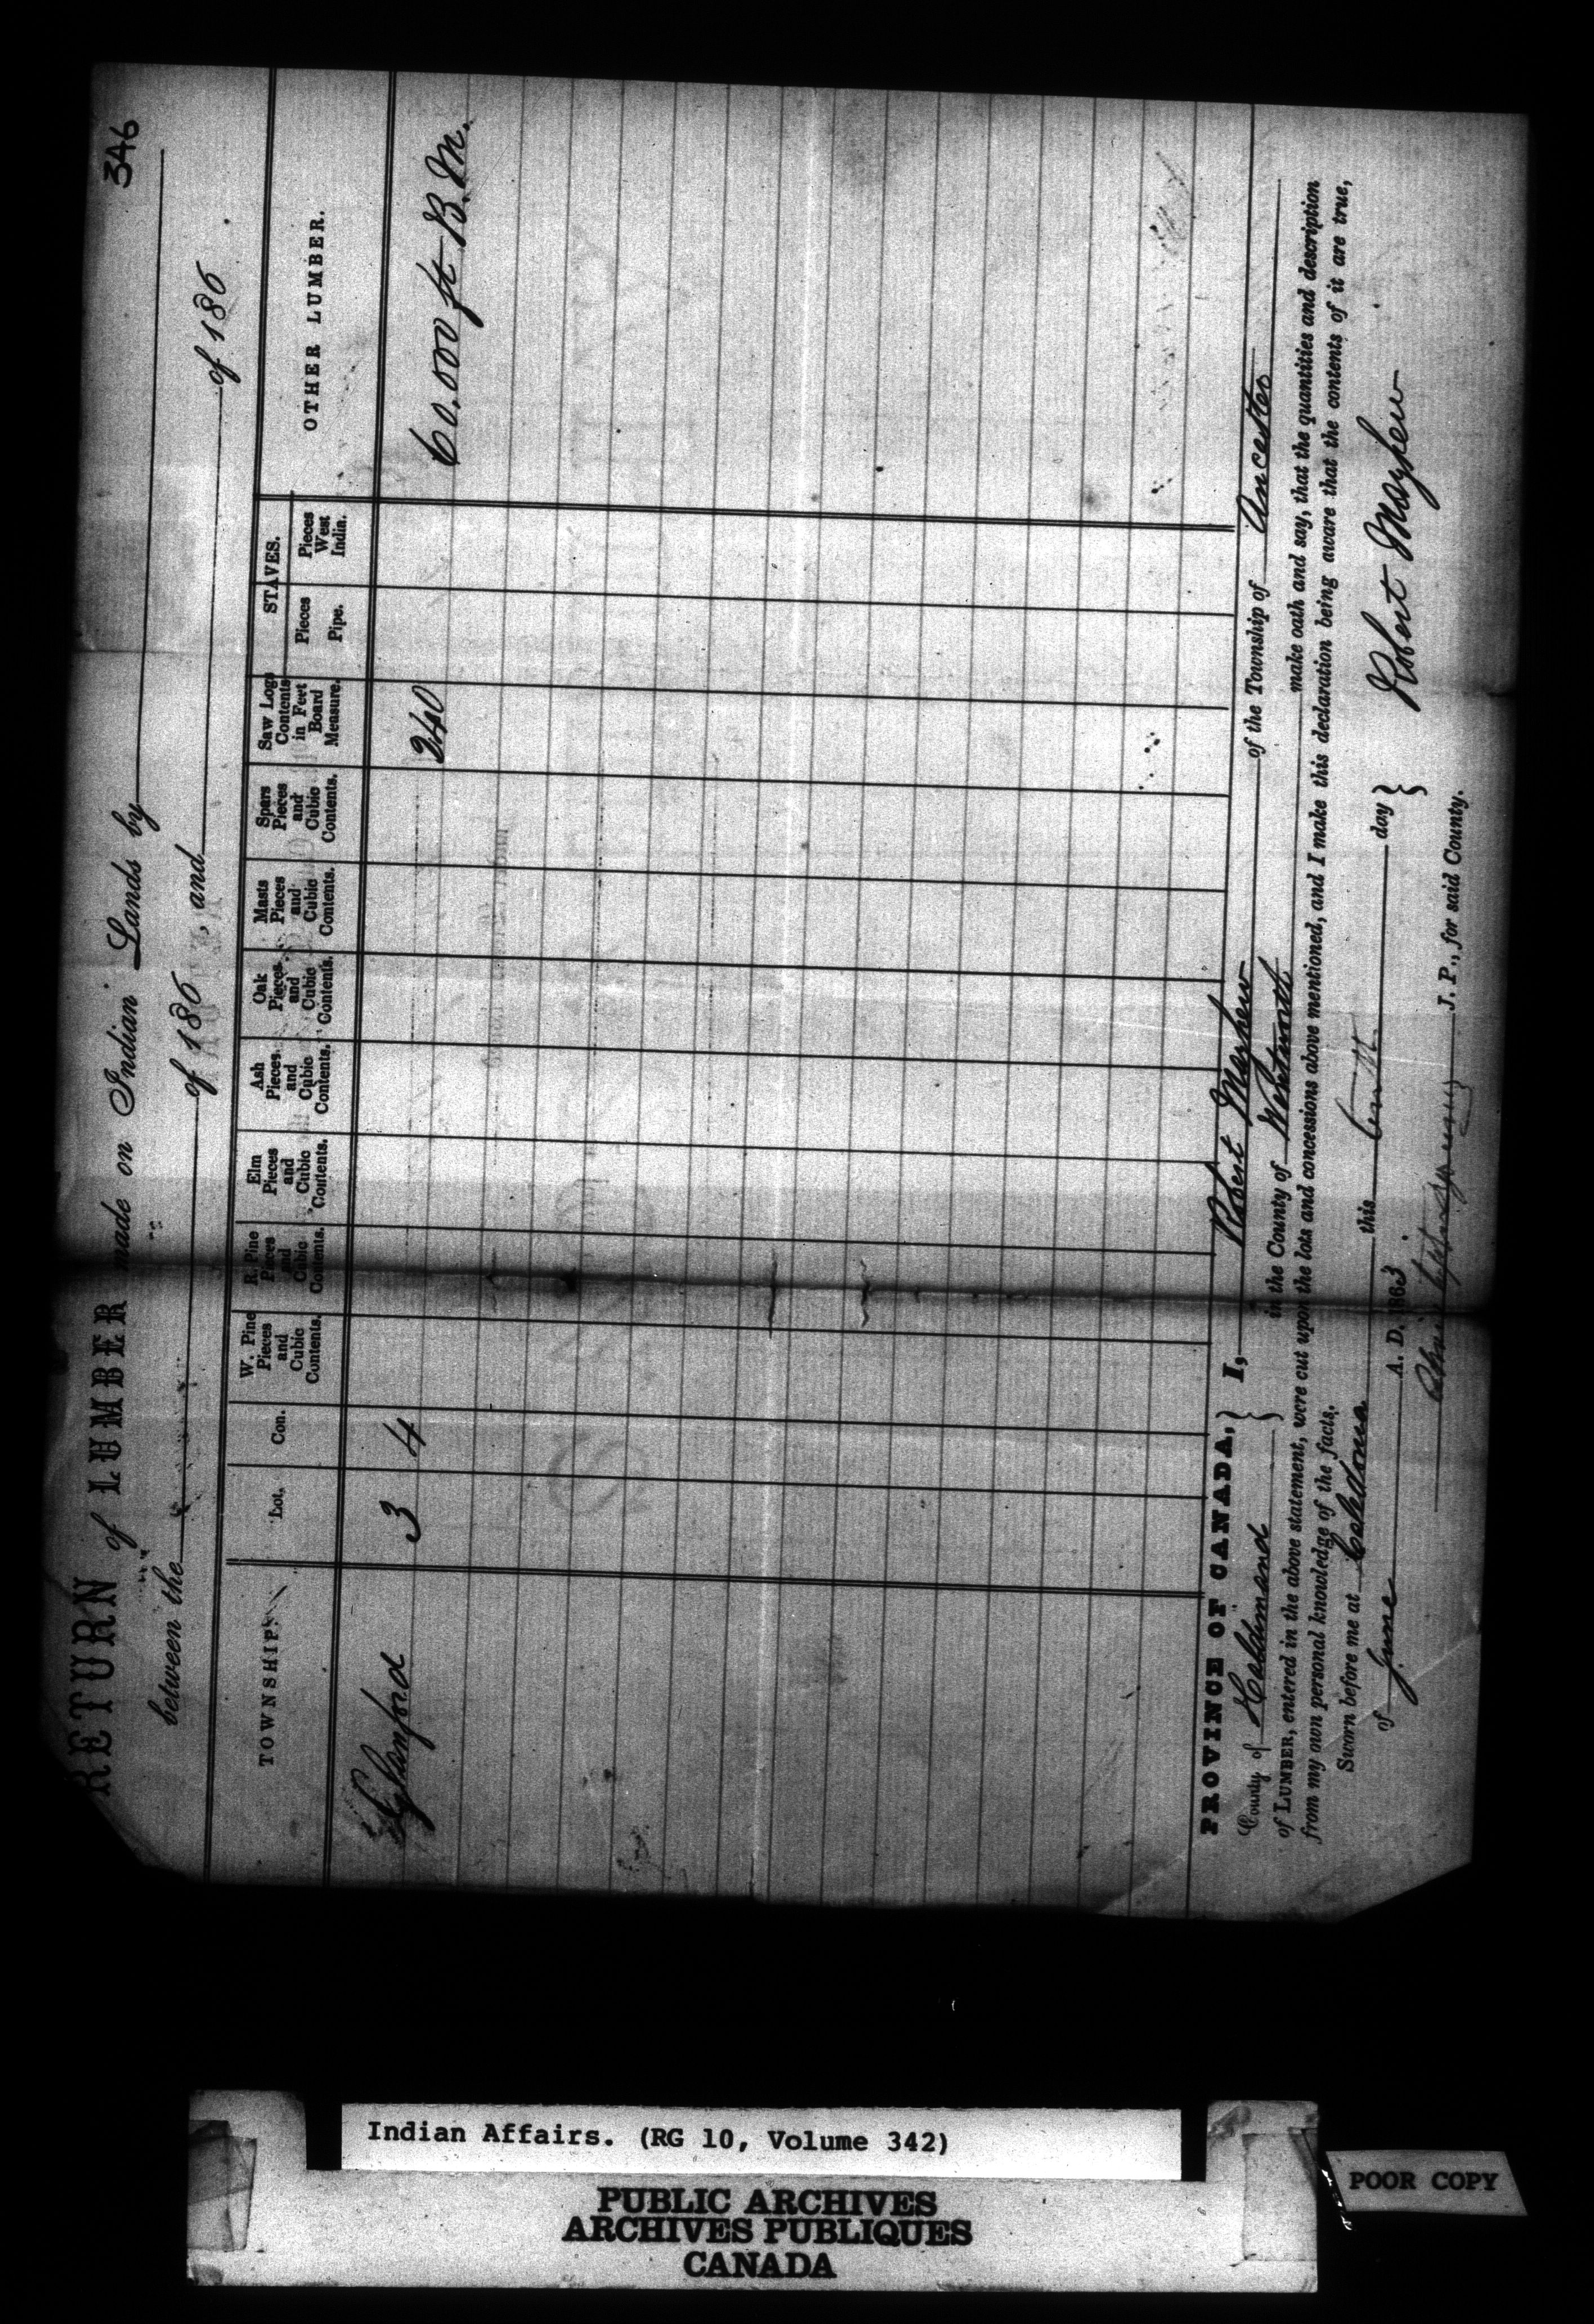 346
RETURN of LUMBER made on Indian Lands by
between the of 186 , and of 186 .
TOWNSHIP. Lot. Con. W. Pine Pieces and Cubic Contents. R. Pine Pieces and Cubic Contents. Elm Pieces and Cubic Contents. Ash Pieces and Cubic Contents. Oak Pieces and Cubic Contents. Masts Pieces and Cubic Contents. Spars Pieces and Cubic Contents. Saw Logs Contents in Feet Board Measure. STAVES. Pieces Pipe. Pieces West India. OTHER LUMBER.
Glanford 3 4 240 60,000 ft B.M.
PROVINCE OF CANADA, } I, Robert Mayhew of the Township of Ancaster
County of Haldimand } in the County of Wentworth make oath and say, that the quantities and description
of LUMBER, entered in the above statement, were cut upon the lots and concessions above mentioned, and I make this declaration being aware that the contents of it are true,
from my own personal knowledge of the facts.
Sworn before me at Caledonia this day }
of June A. D. 1863. }
Robert Mayhew
J. P., for said County.
Indian Affairs. (RG 10, Volume 342)
PUBLIC ARCHIVES
ARCHIVES PUBLIQUES
CANADA
POOR COPY